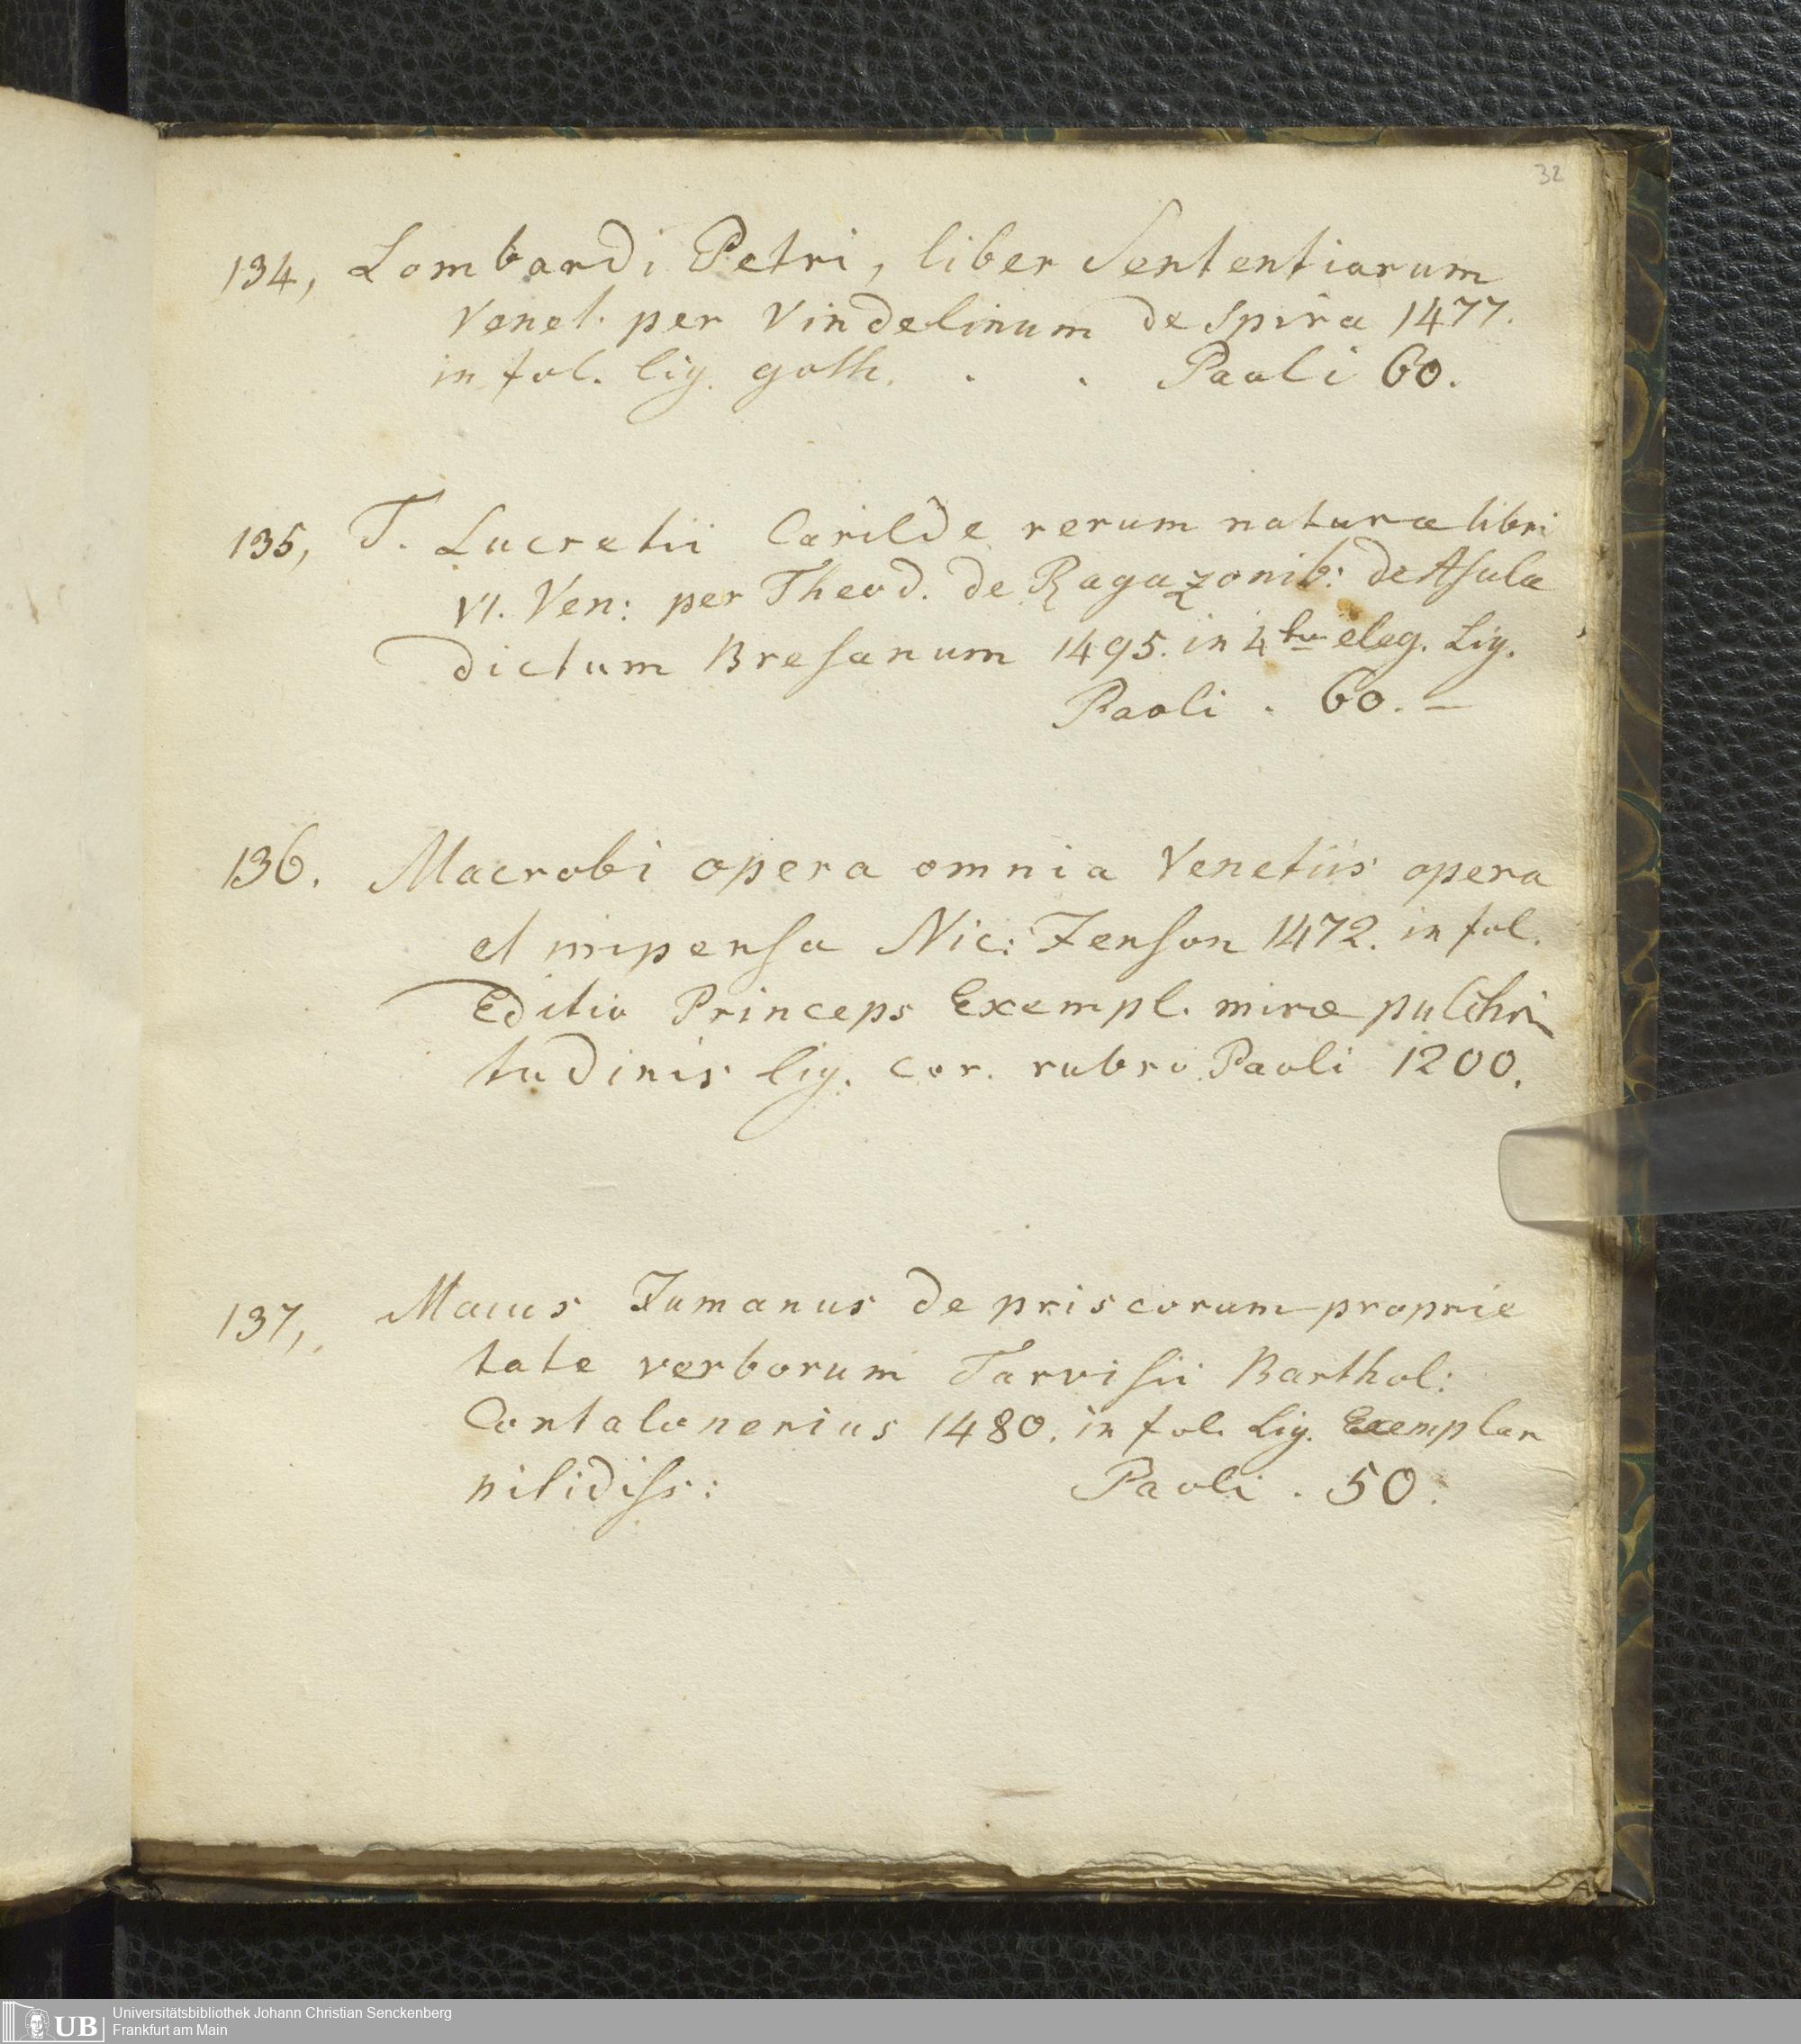 32
134, Lombardi Petri, liber Sententiarum
Venet. per Vindelinum de Spira 1477.
in fol. lig. goth. . . Paoli 60.
135, T. Lucretii Carilde rerum naturæ libri
VI. Ven: per Theod. de Ragazonib: de Asula
dictum Bresanum 1495. in 4to eleg. Lig.
Paoli . 60. –
136. Macrobi opera omnia Venetiis opera
et impensa Nic: Jenson 1472. in fol.
Editio Princeps Exempl. miræ pulchri
tudinis lig. cor. rubro. Paoli 1200.
137, Maius Jumanus de priscorum proprie
tate verborum Tarvisii Barthol:
Contalonerius 1480. in fol. Lig. Exemplar
nitidiss: Paoli . 50.
UB
Universitätsbibliothek Johann Christian Senckenberg
Frankfurt am Main